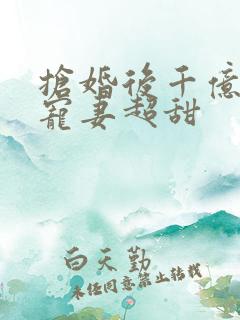 搶婚後千億
寵妻超甜
白天勤
未经同意禁止转载